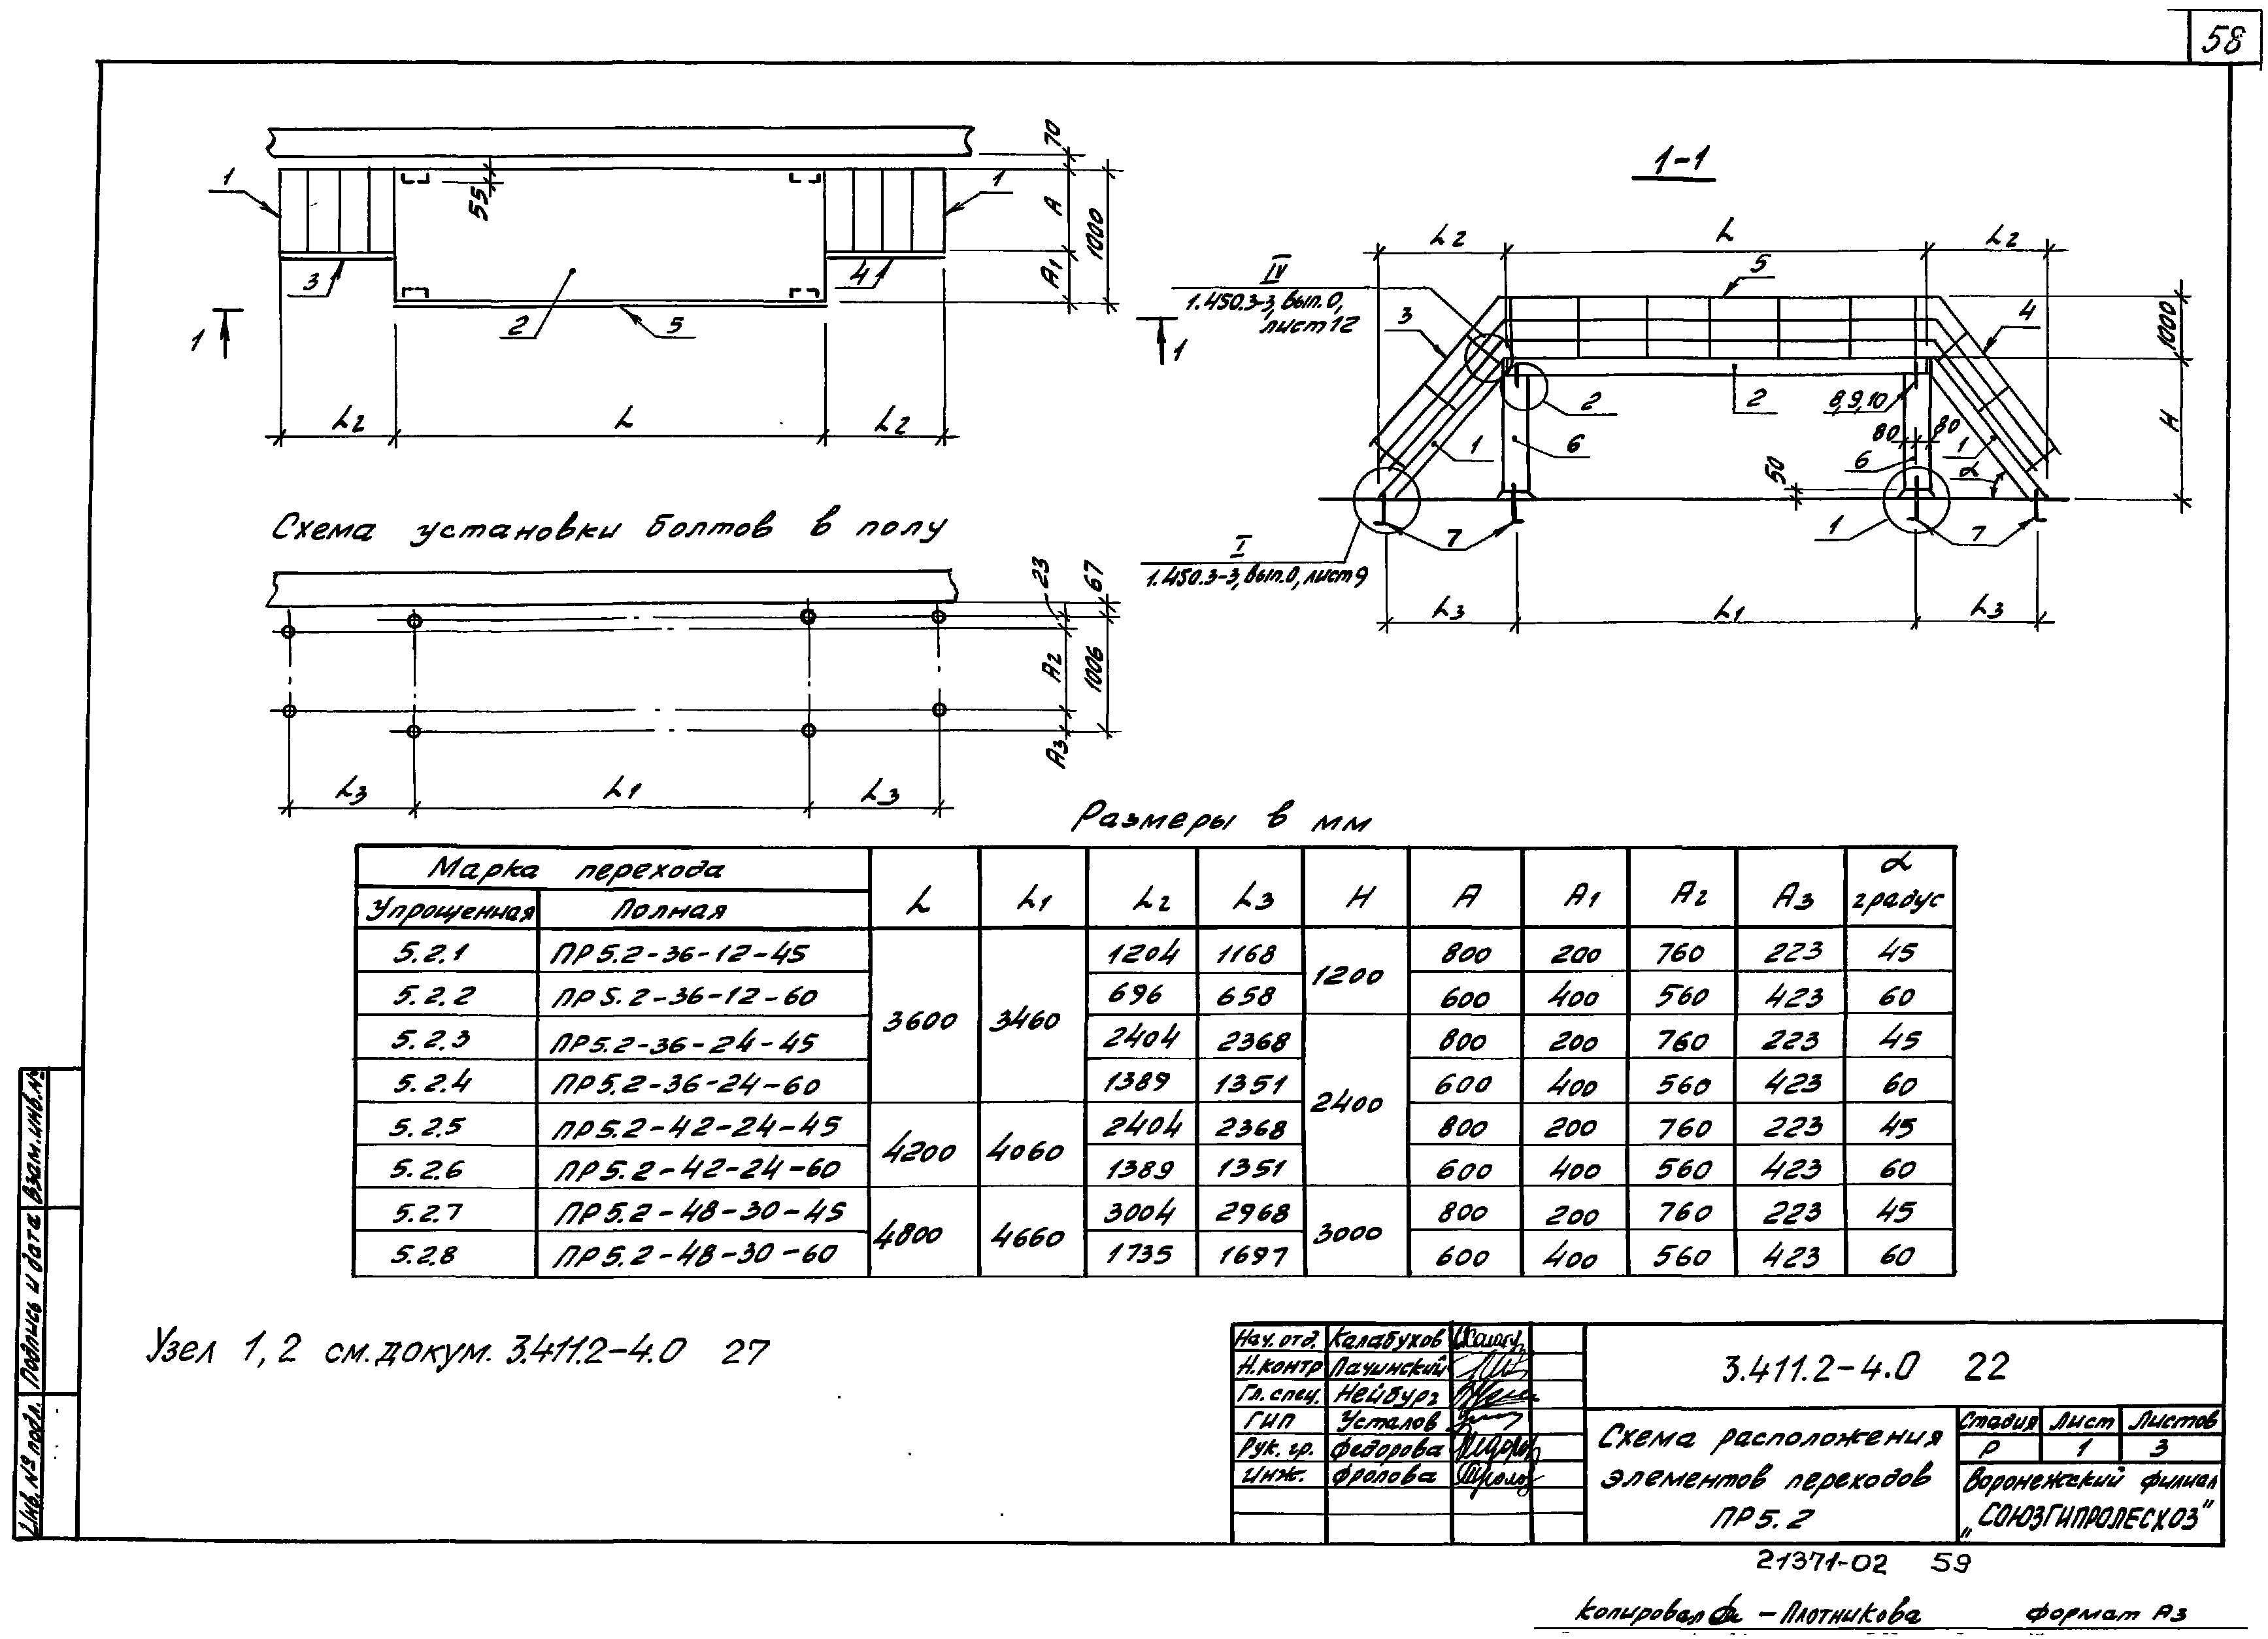 58
70
1
1
55
A
1000
A1
3
4
2
5
1
1
L2
L
L2
1-1
L2
L
L2
IV
1.450.3-3, вып. 0,
лист 12
5
3
4
1000
2
8,9,10
2
H
80
80
1
6
6
1
50
α
7
1
7
I
1.450.3-3, вып. 0, лист 9
L3
L1
L3
Схема установки болтов в полу
23
67
A2
1006
A3
L3
L1
L3
Размеры в мм
Марка перехода
Упрощенная Полная L L1 L2 L3 H A A1 A2 A3 α градус
5.2.1 ПР5.2-36-12-45 3600 3460 1204 1168 1200 800 200 760 223 45
5.2.2 ПР5.2-36-12-60 696 658 600 400 560 423 60
5.2.3 ПР5.2-36-24-45 2404 2368 2400 800 200 760 223 45
5.2.4 ПР5.2-36-24-60 1389 1351 600 400 560 423 60
5.2.5 ПР5.2-42-24-45 4200 4060 2404 2368 800 200 760 223 45
5.2.6 ПР5.2-42-24-60 1389 1351 600 400 560 423 60
5.2.7 ПР5.2-48-30-45 4800 4660 3004 2968 3000 800 200 760 223 45
5.2.8 ПР5.2-48-30-60 1735 1697 600 400 560 423 60
Узел 1, 2 см. докум. 3.411.2-4.0 27
Инв. № подл. Подпись и дата Взам. инв. №
Нач. отд. Калабухов
Н. контр Пачинский
Гл. спец. Нейбург
ГИП Усталов
Рук. гр. Федорова
Инж. Фролова
3.411.2-4.0 22
Схема расположения
элементов переходов
ПР5.2
Стадия Лист Листов
Р 1 3
Воронежский филиал
„СОЮЗГИПРОЛЕСХОЗ"
21371-02 59
Копировал - Плотникова Формат А3